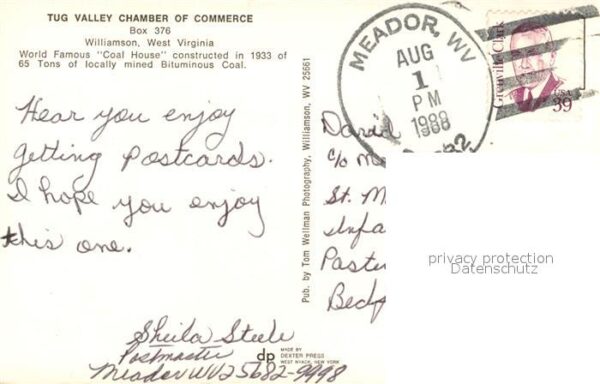 TUG VALLEY CHAMBER OF COMMERCE
Box 376
Williamson, West Virginia
World Famous "Coal House" constructed in 1933 of
65 Tons of locally mined Bituminous Coal.
Hear you enjoy
getting postcards.
I hope you enjoy
this one.
Sheila Steele
Postmaster
Meador WV 25682-9998
Pub. by Tom Wellman Photography, Williamson, WV 25661
dp
MADE BY
DEXTER PRESS
WEST NYACK, NEW YORK
MEADOR, WV
AUG
1
PM
1988
Grenville Clark
USA
39
David
c/o
St. M
Infa
Paste
Bedf
privacy protection
Datenschutz